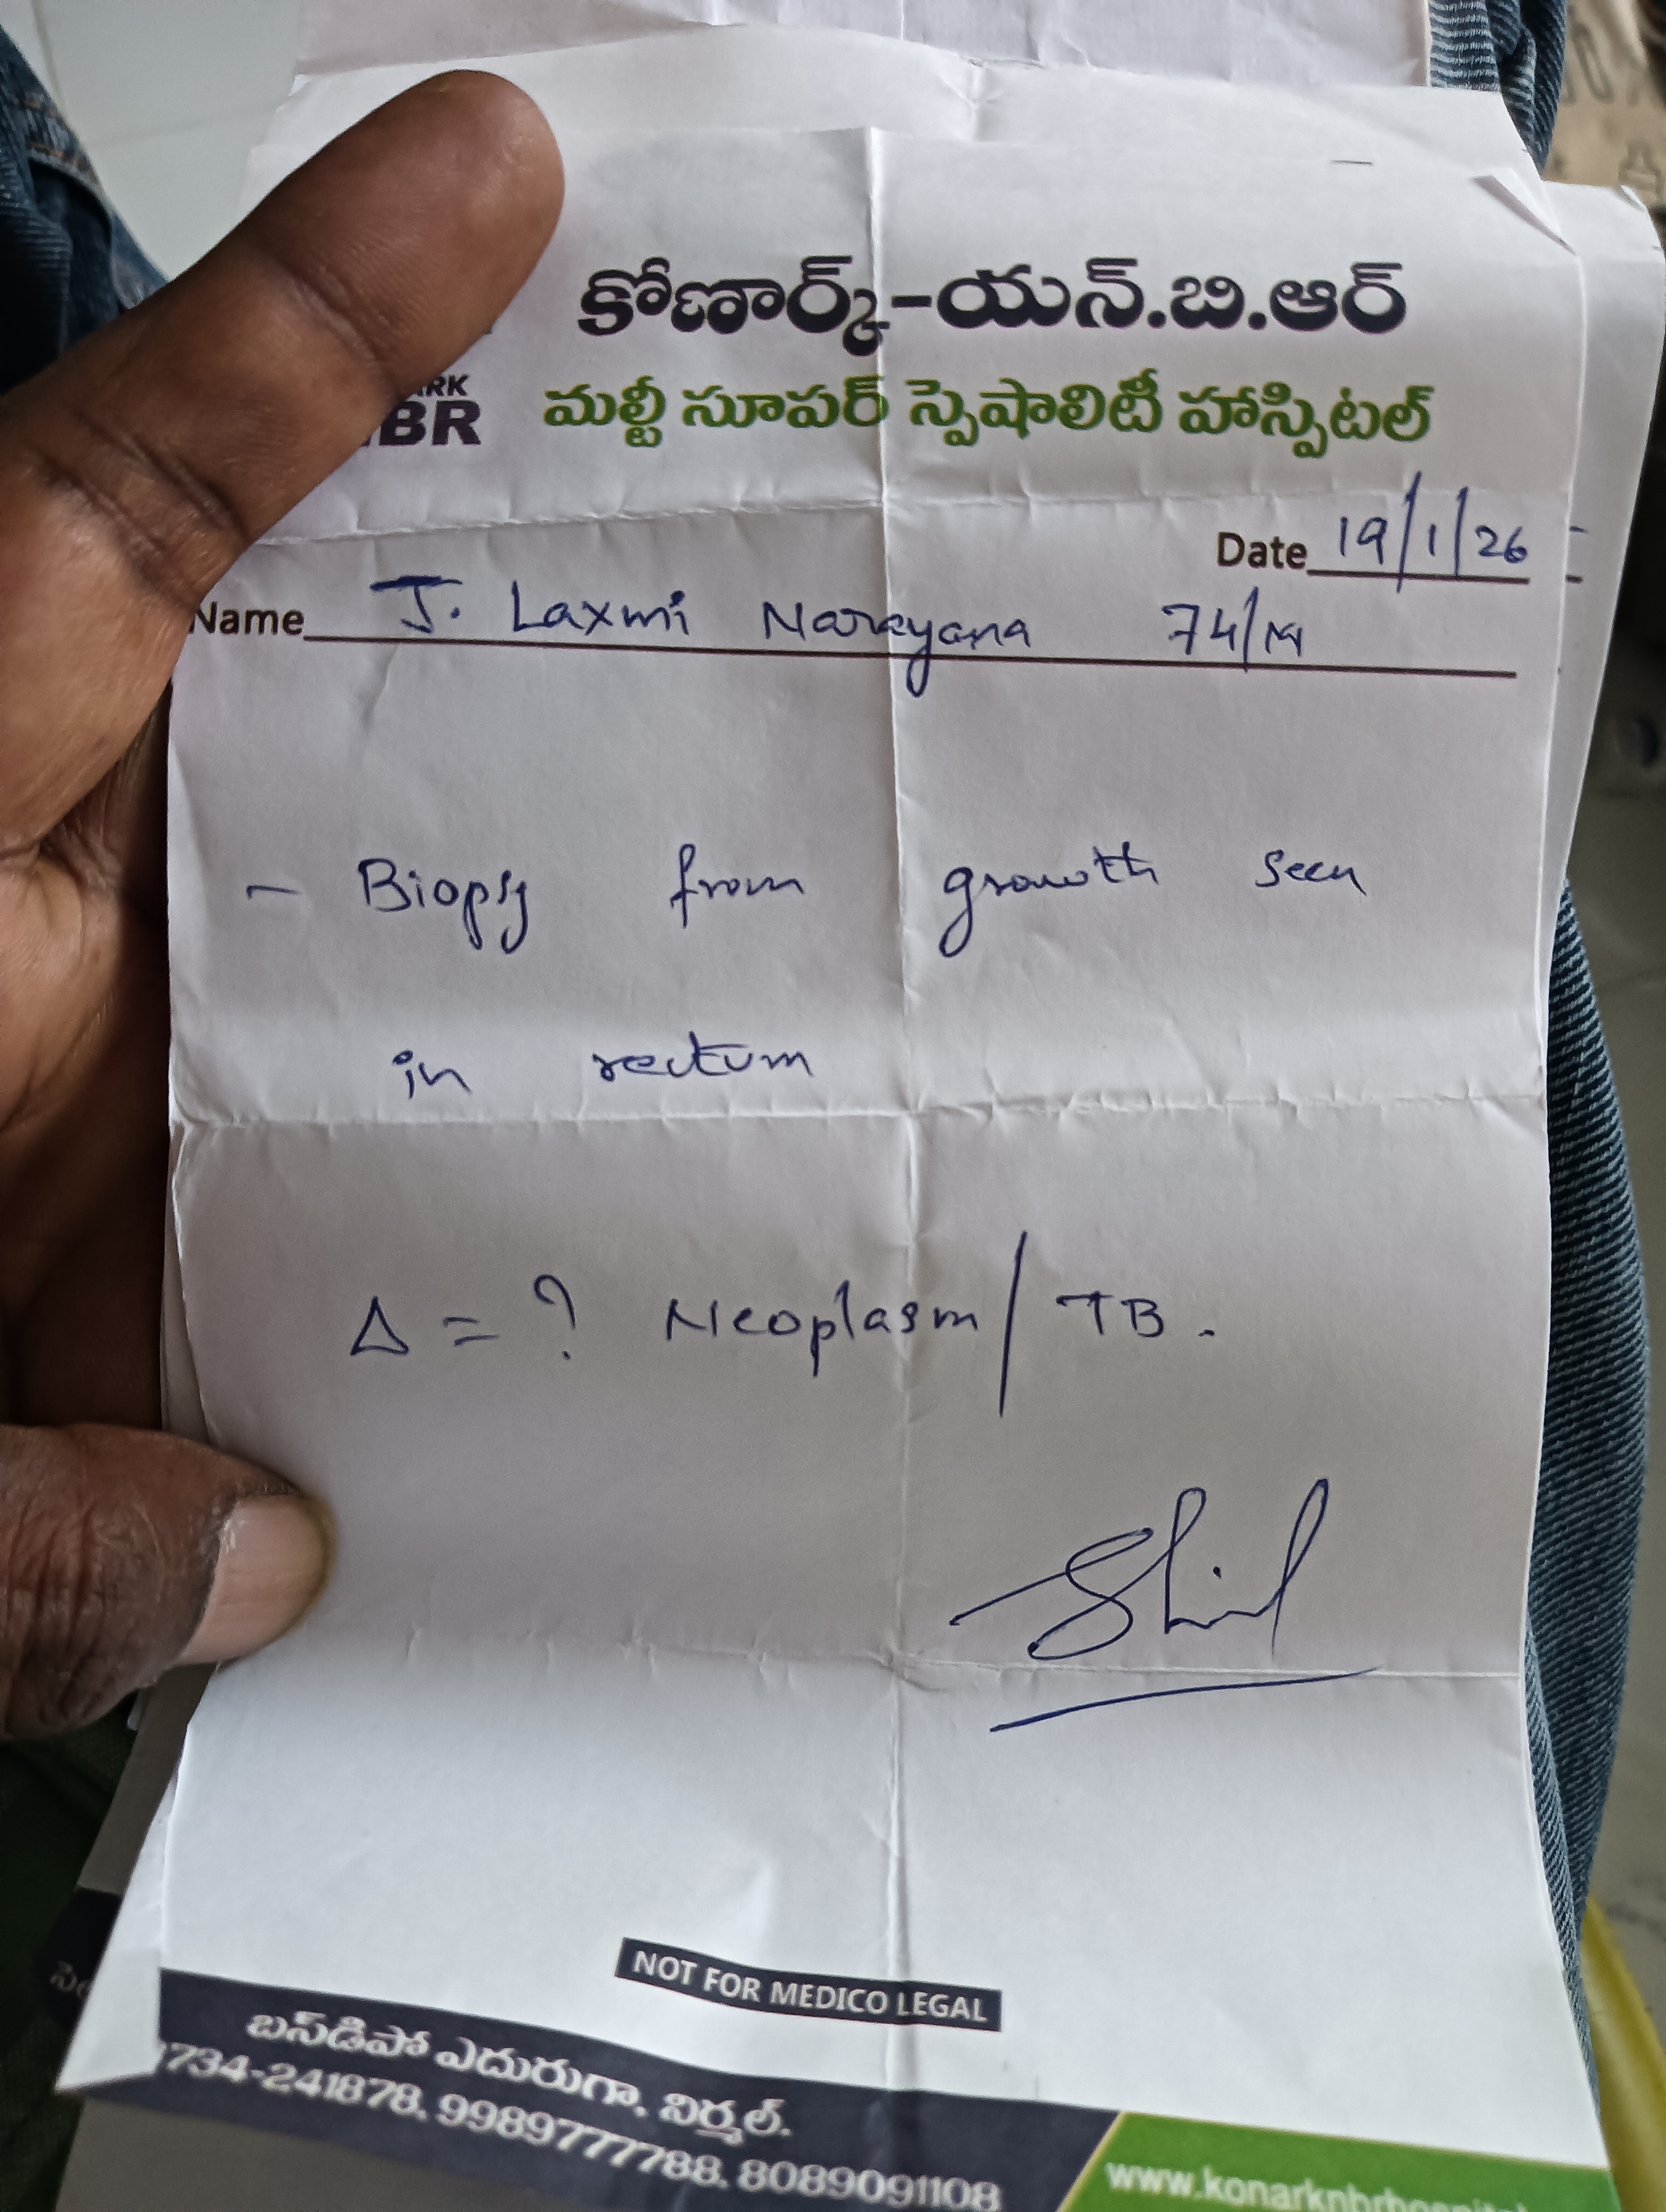 కోణార్క్-యన్.బి.ఆర్
ARK
BR మల్టీ సూపర్ స్పెషాలిటీ హాస్పిటల్
Date 19/1/26
Name J. Laxmi Narayana 74/M
- Biopsy from growth seen
in rectum
Δ = ? Neoplasm / TB.
NOT FOR MEDICO LEGAL
బస్‌డిపో ఎదురుగా, నిర్మల్.
734-241878, 9989777788, 8089091108
www.konarknbrhospital